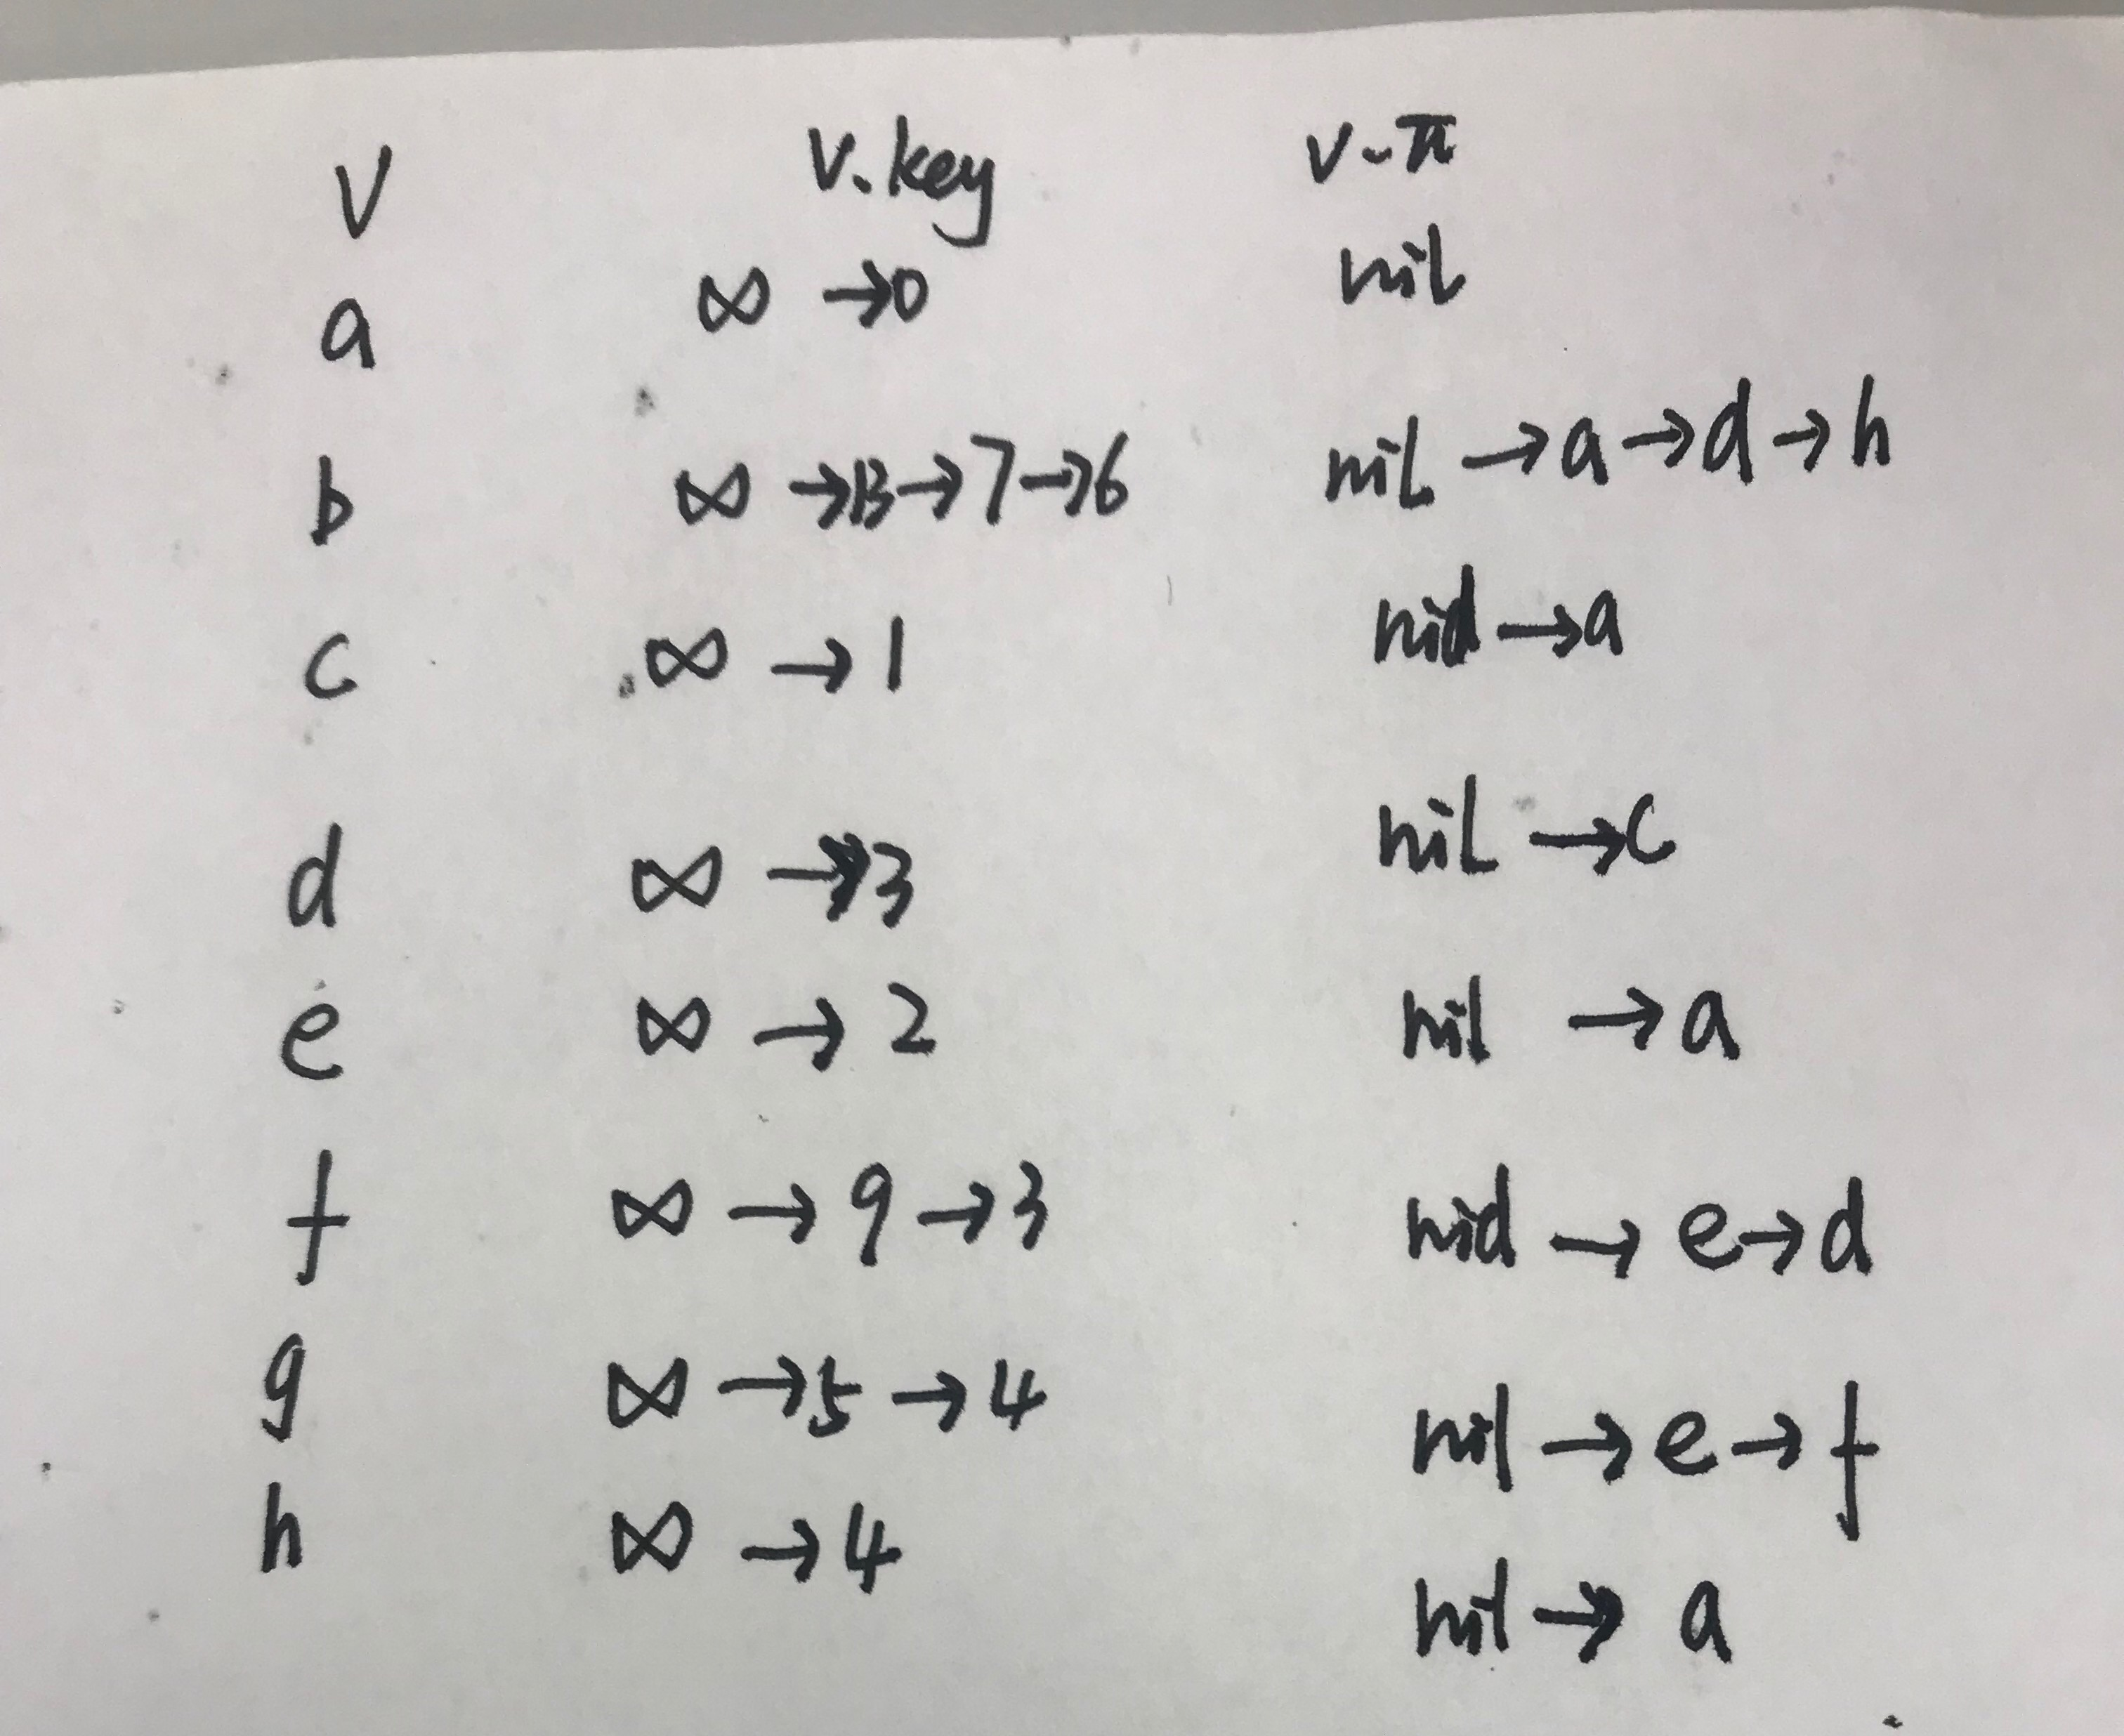 V v.key v.π
a ∞ →0 nil
b ∞ →13→7→6 nil →a→d→h
c ∞ →1 nil→a
d ∞ →3 nil →c
e ∞ →2 nil →a
f ∞ →9→3 nil →e→d
g ∞ →5→4 nil→e→f
h ∞ →4 nil→a